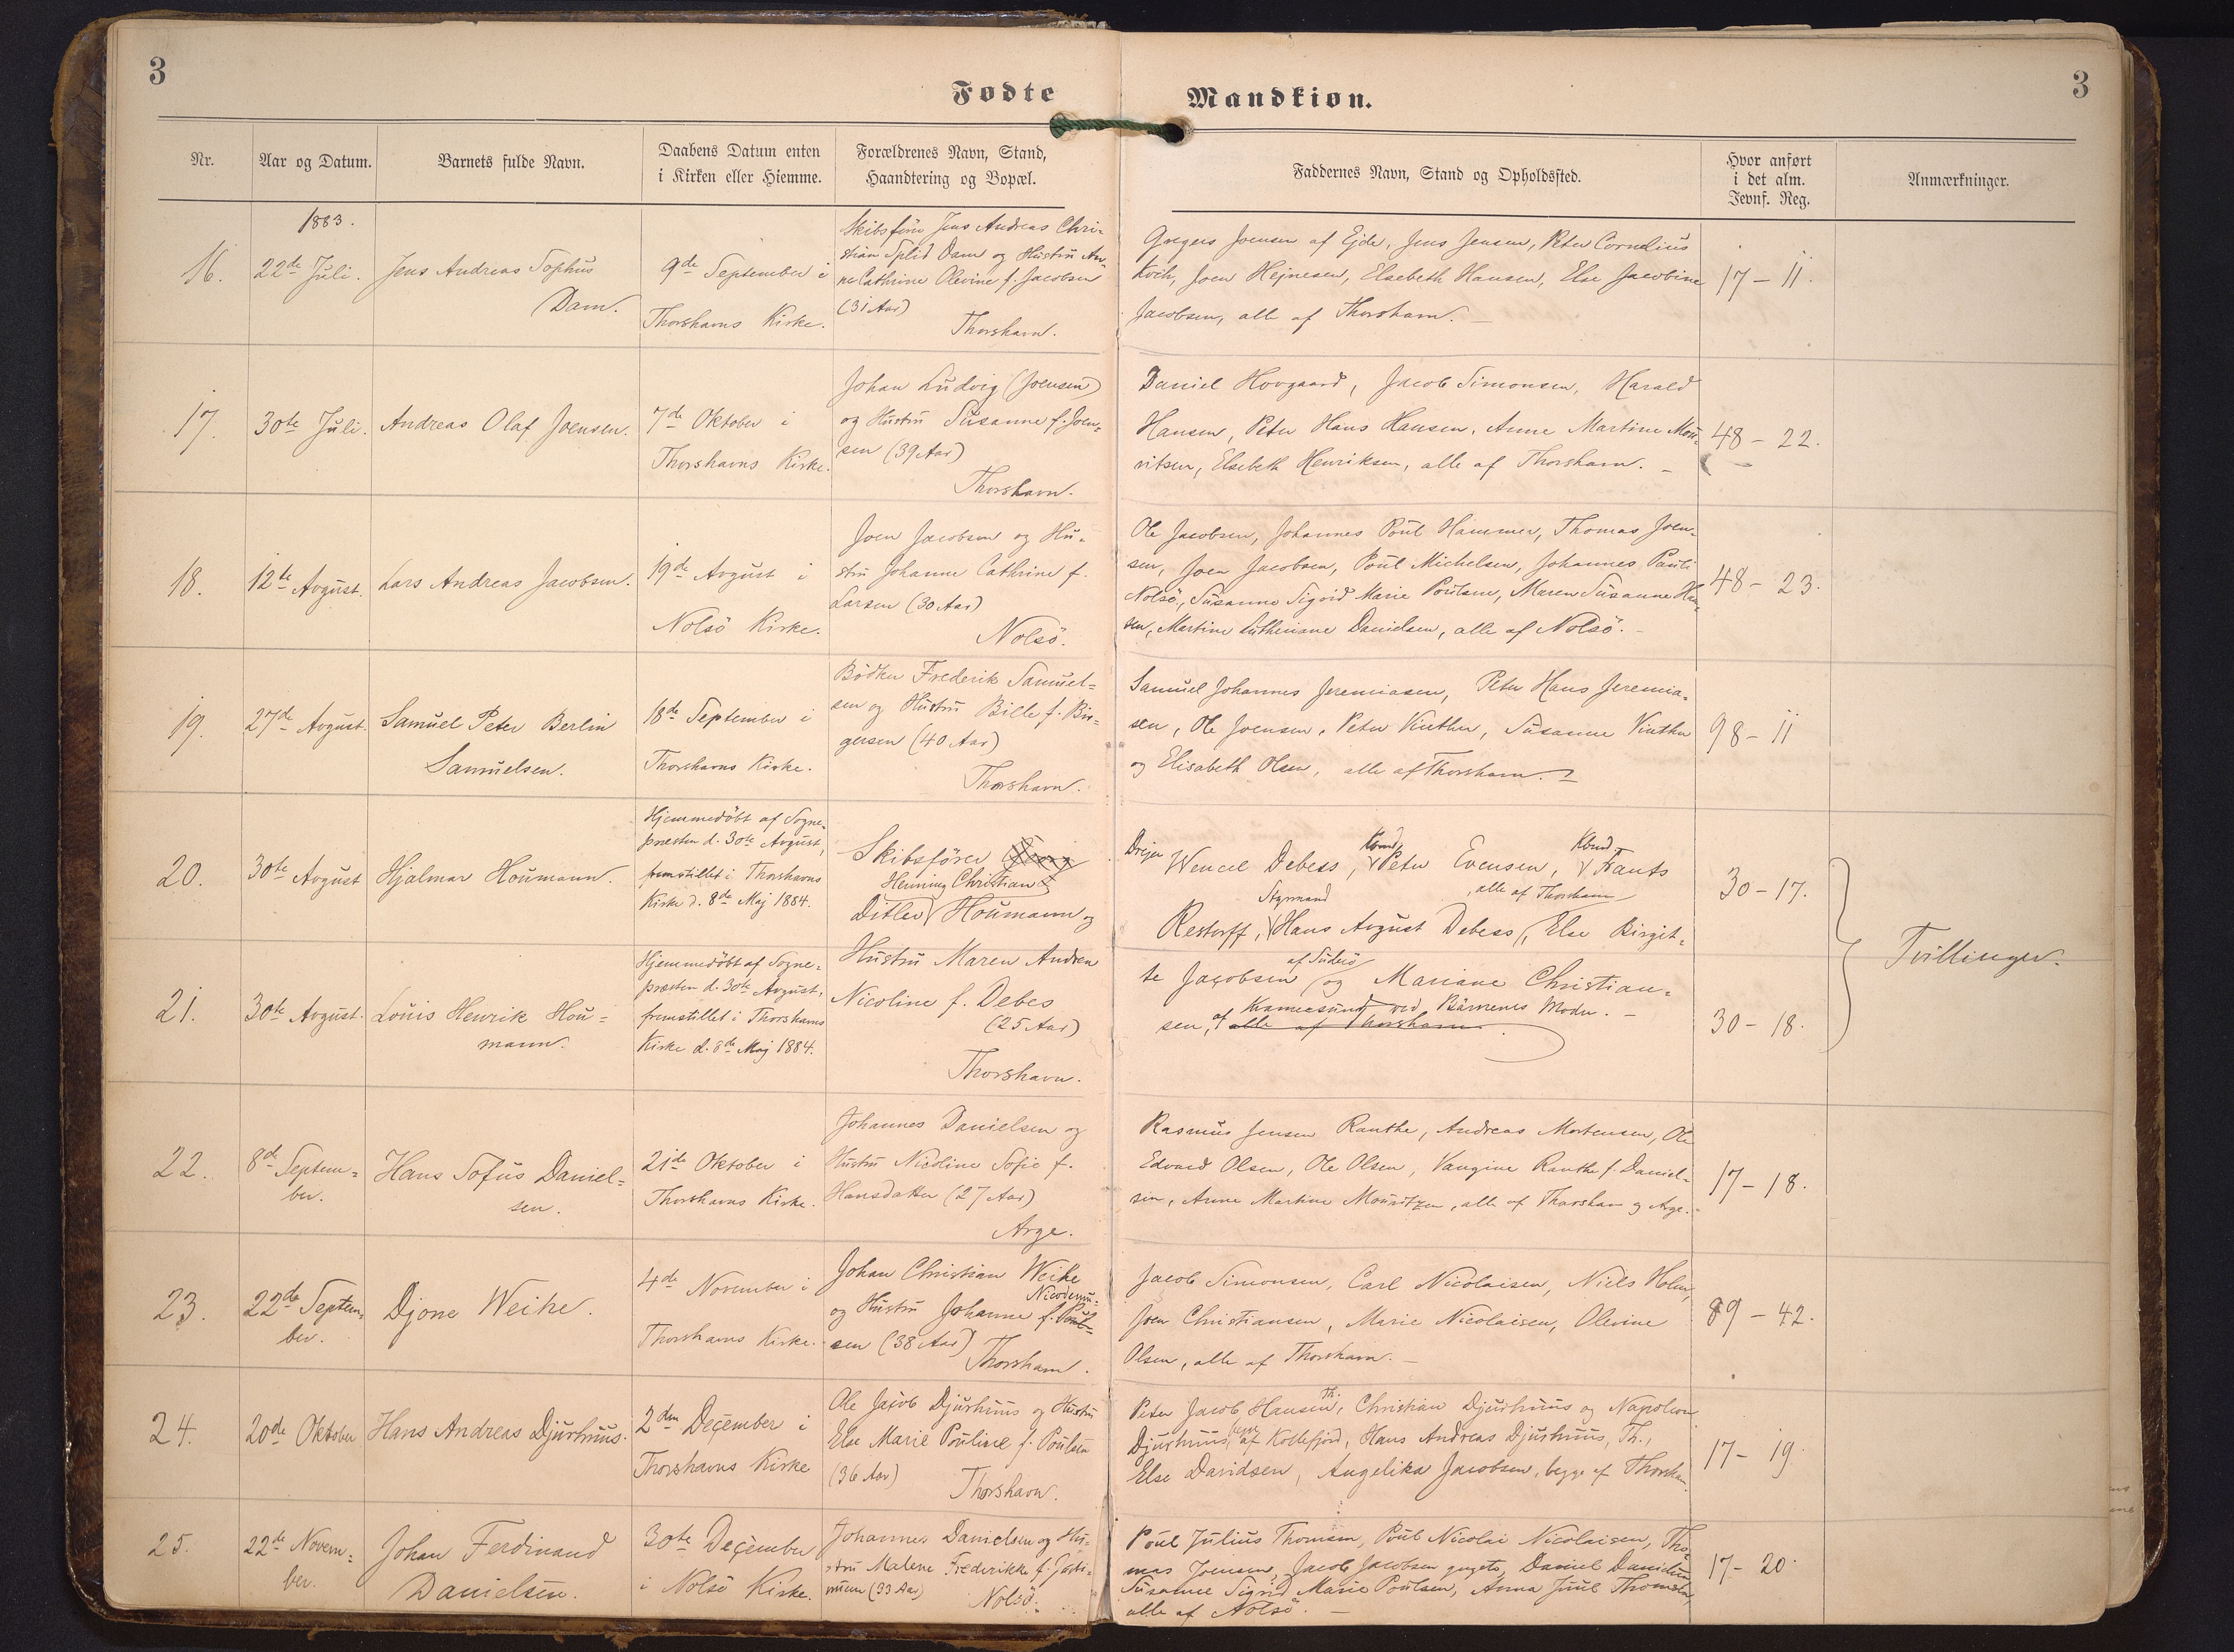 3
3
Fødte
Mandkiøn.
Nr.
Aar og Datum.
Barnets fulde Navn.
Daabens Datum enten
i Kirken eller Hiemme.
Forældrenes Navn, Stand,
Haandtering og Bopæl.
Faddernes Navn, Stand og Opholdssted.
Hvor anført
i det alm.
Jevnf. Reg.
Anmærkninger.
1883.
16.
22de Juli.
Jens Andreas Sophus
Dam.
9de September i
Thorshavns Kirke.
Skibsfører Jens Andreas Chri-
stian Splid Dam og Hustru An-
ne Cathrine Olevine f. Jacobsen
(31 Aar)
Thorshavn.
Gregers Joensen af Ejde, Jens Jensen, Peter Cornelius
Koch, Joen Hejnesen, Elsebeth Hansen, Else Jacobine
Jacobsen, alle af Thorshavn. —
17 – 11.
17.
30te Juli.
Andreas Olaf Joensen.
7de Oktober i
Thorshavns Kirke.
Johan Ludvig (Joensen)
og Hustru Susanne f. Joen-
sen (39 Aar)
Thorshavn.
Daniel Hovgaard, Jacob Simonsen, Harald
Hansen, Peter Hans Hansen, Anne Martine Mou-
ritsen, Elsebeth Henriksen, alle af Thorshavn. –
48 – 22.
18.
12te Avgust.
Lars Andreas Jacobsen.
19de Avgust i
Nolsö Kirke.
Joen Jacobsen og Hu-
stru Johanne Cathrine f.
Larsen (30 Aar)
Nolsö.
Ole Jacobsen, Johannes Poul Hammer, Thomas Joen-
sen, Joen Jacobsen, Poul Michelsen, Johannes Pauli
Nolsö, Susanne Sigvid Marie Poulsen, Maren Susanne Han-
sen, Martine Danielsen, alle af Nolsö. –
48 – 23.
19.
27de Avgust.
Samuel Peter Berlin
Samuelsen.
18de September i
Thorshavns Kirke.
Bödker Frederik Samuel=
sen og Hustru Bille f. Bir=
gersen (40 Aar)
Thorshavn.
Samuel Johannes Jeremiasen, Peter Hans Jeremia-
sen, Ole Joensen, Peter Vinther, Susanne Vinther
og Elisabeth Olsen, alle af Thorshavn. –
98 – 11
20.
30te Avgust
Hjalmar Houmann.
Hjemmedöbt af Sogne-
præsten d. 30te Avgust,
fremstillet i Thorshavns
Kirke d. 8de Maj 1884.
Skibsförer
Henning Christian
Ditlev Houmann og
Drejer Wencel Debess, Kbmd. Peter Evensen, Kbmd. Frants
Styrmand
, alle af Thorshavn
Restorff, Hans Avgust Debess, Else Birgit-
30 – 17.
21.
30te Avgust.
Louis Henrik Hou=
mann.
Hjemmedöbt af Sogne=
præsten d. 30te Avgust,
fremstillet i Thorshavns
Kirke d. 8de Maj 1884.
Hustru Maren Andrea
Nicoline f. Debes
(25 Aar)
Thorshavn.
af Suderö
te Jacobsen og Mariane Christian=
sen, af ved Börnenes Moder. –
alle af Thorshavn.
30 – 18.
Tvillinger.
22.
8de Septem=
ber.
Hans Sofus Daniel=
sen.
21de Oktober i
Thorshavns Kirke.
Johannes Danielsen og
Hustru Nicoline Sofie f.
Hansdatter (27 Aar)
Arge.
Rasmus Jensen Ranthe, Andreas Mortensen, Ole
Edvard Olsen, Ole Olsen, Vangine Ranthe f. Daniel-
sen, Anne Martine Mouritzen, alle af Thorshavn og Arge.
17 – 18.
23.
22de Septem-
ber.
Djone Weihe.
4de November i
Thorshavns Kirke.
Johan Christian Weihe
Nicodemu-
og Hustru Johanne f. Poul-
sen (38 Aar)
Thorshavn.
Jacob Simonsen, Carl Nicolaisen, Niels Holm,
Joen Christiansen, Marie Nicolaisen, Olevine
Olsen, alle af Thorshavn. –
89 – 42.
24.
20de Oktober
Hans Andreas Djurhuus.
2den December i
Thorshavns Kirke
Ole Jacob Djurhuus og Hustru
Else Marie Pouline f. Poulsen
(36 Aar)
Thorshavn.
Peter Jacob Hansen, Th. Christian Djurhuus og Napoleon
Djurhuus, begge af Kollefjord, Hans Andreas Djurhuus, Th.,
Else Davidsen, Angelika Jacobsen, begge af Thorshavn.
17 – 19
25.
22de Novem=
ber.
Johan Ferdinand
Danielsen.
30te December
i Nolsö Kirke.
Johannes Danielsen og Hu-
stru Malene Frederikke f.
(33 Aar)
Nolsö.
Poul Julius Thomsen, Poul Nicolai Nicolaisen, Tho-
mas Joensen, Jacob Jacobsen Daniel Danielsen
Susanne Sigrid Marie Poulsen, Anna Juul Thomsen,
alle af Nolsö. –
17 – 20